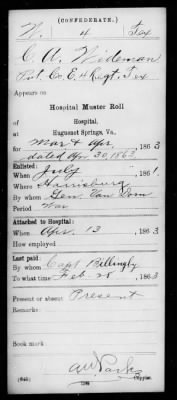 (CONFEDERATE.)
W. 4 Tex
C. A. Wideman
Pvt. Co. E, 4 Regt. Tex
Appears on
Hospital Muster Roll
of Hospital,
Huguenot Springs, Va.,
for Mar & Apr, 1863
dated Apr 30, 1863
Enlisted:
When July, 1861
Where Harrisburg
By whom Gen. Van Dorn
Period War
Attached to Hospital:
When Apr. 13, 1863
How employed
Last paid:
By whom Capt. Billingsly
To what time Feb. 28, 1863
Present or absent Present
Remarks:
Book mark:
(646)
Copyist.